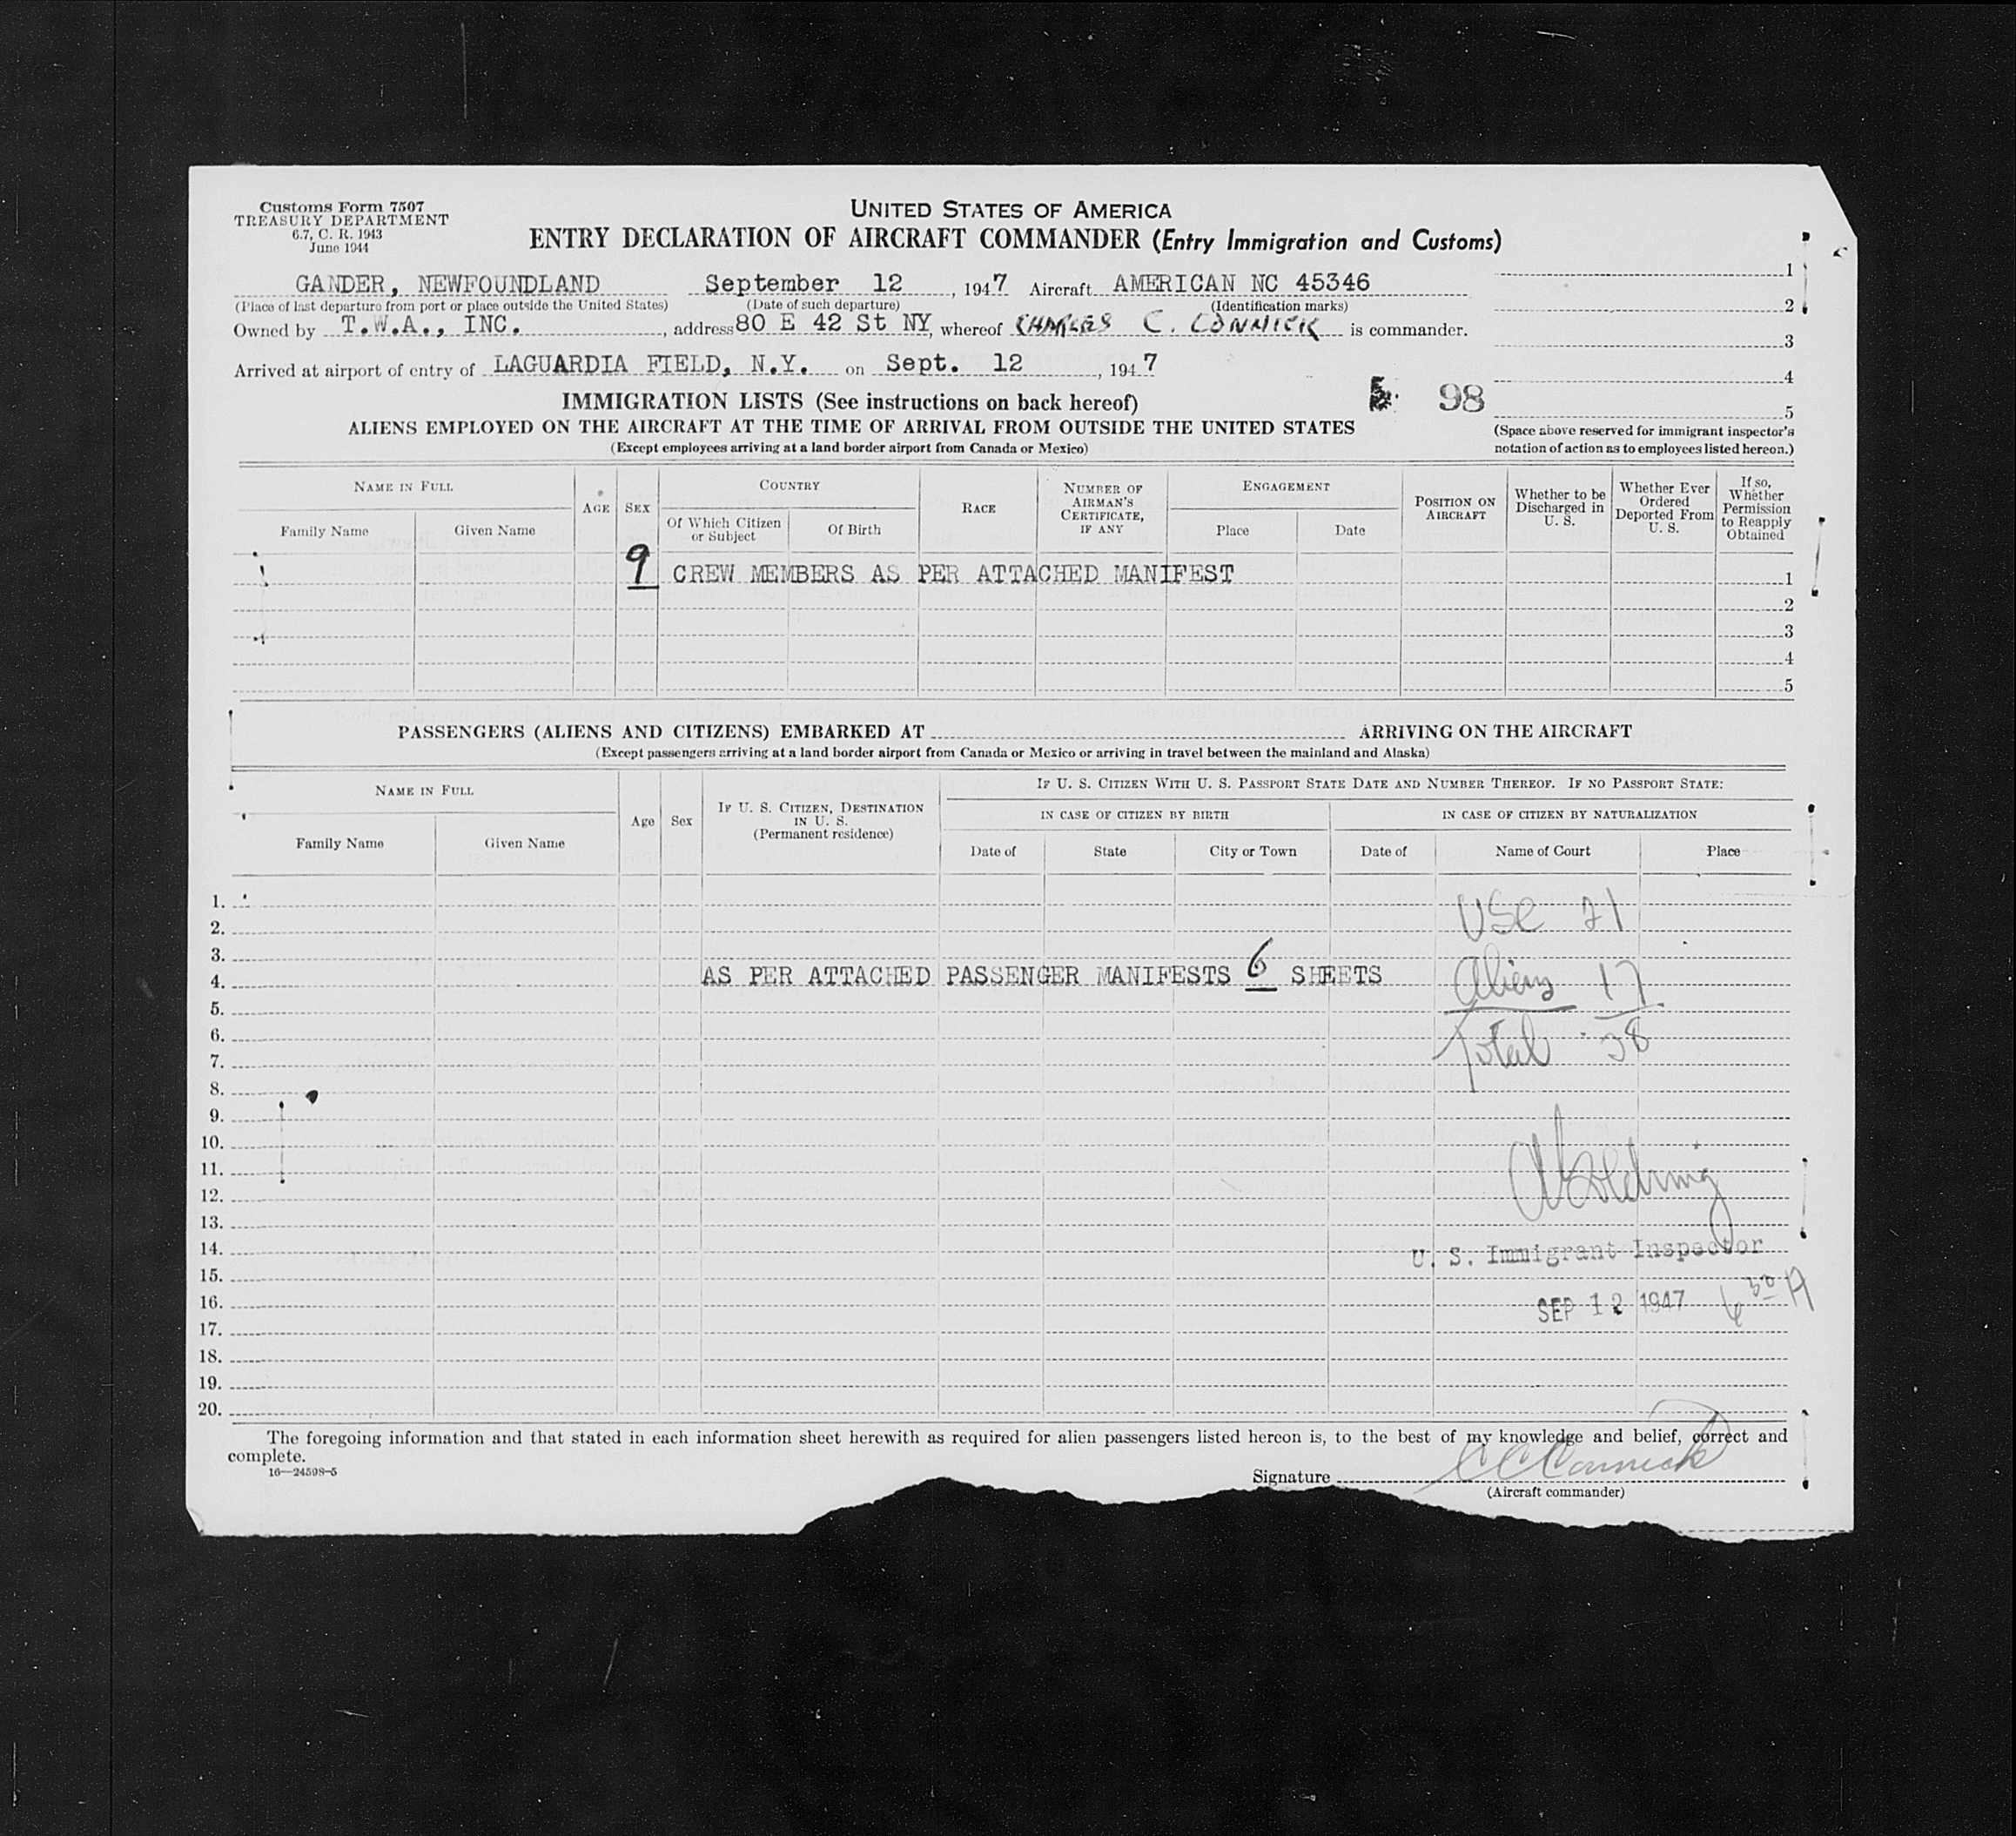 Customs Form 7507
TREASURY DEPARTMENT
6.7, C. R. 1943
June 1944
UNITED STATES OF AMERICA
ENTRY DECLARATION OF AIRCRAFT COMMANDER (Entry Immigration and Customs)
GANDER, NEWFOUNDLAND September 12, 1947 Aircraft AMERICAN NC 45346
(Place of last departure from port or place outside the United States) (Date of such departure) (Identification marks)
Owned by T.W.A., INC., address 80 E 42 St NY, whereof CHARLES C. CONNICK is commander.
Arrived at airport of entry of LAGUARDIA FIELD, N.Y. on Sept. 12, 1947
1
2
3
4
5
(Space above reserved for immigrant inspector's
notation of action as to employees listed hereon.)
98
IMMIGRATION LISTS (See instructions on back hereof)
ALIENS EMPLOYED ON THE AIRCRAFT AT THE TIME OF ARRIVAL FROM OUTSIDE THE UNITED STATES
(Except employees arriving at a land border airport from Canada or Mexico)
NAME IN FULL
Family Name
Given Name
AGE
SEX
COUNTRY
Of Which Citizen or Subject
Of Birth
RACE
NUMBER OF AIRMAN'S CERTIFICATE, IF ANY
ENGAGEMENT
Place
Date
POSITION ON AIRCRAFT
Whether to be Discharged in U. S.
Whether Ever Ordered Deported From U. S.
If so, Whether Permission to Reapply Obtained
9 CREW MEMBERS AS PER ATTACHED MANIFEST 1
2
3
4
5
PASSENGERS (ALIENS AND CITIZENS) EMBARKED AT ARRIVING ON THE AIRCRAFT
(Except passengers arriving at a land border airport from Canada or Mexico or arriving in travel between the mainland and Alaska)
NAME IN FULL
Family Name
Given Name
Age
Sex
IF U. S. CITIZEN, DESTINATION IN U. S.
(Permanent residence)
IF U. S. CITIZEN WITH U. S. PASSPORT STATE DATE AND NUMBER THEREOF. IF NO PASSPORT STATE:
IN CASE OF CITIZEN BY BIRTH
Date of
State
City or Town
IN CASE OF CITIZEN BY NATURALIZATION
Date of
Name of Court
Place
1. USC 21
2.
3.
4. AS PER ATTACHED PASSENGER MANIFESTS 6 SHEETS Aliens 17
5.
6. Total 38
7.
8.
9.
10.
11.
12.
13.
14. U. S. Immigrant Inspector
15.
16. SEP 12 1947 6 30 A
17.
18.
19.
20.
The foregoing information and that stated in each information sheet herewith as required for alien passengers listed hereon is, to the best of my knowledge and belief, correct and
complete.
16—24598-5
Signature C C Connick
(Aircraft commander)